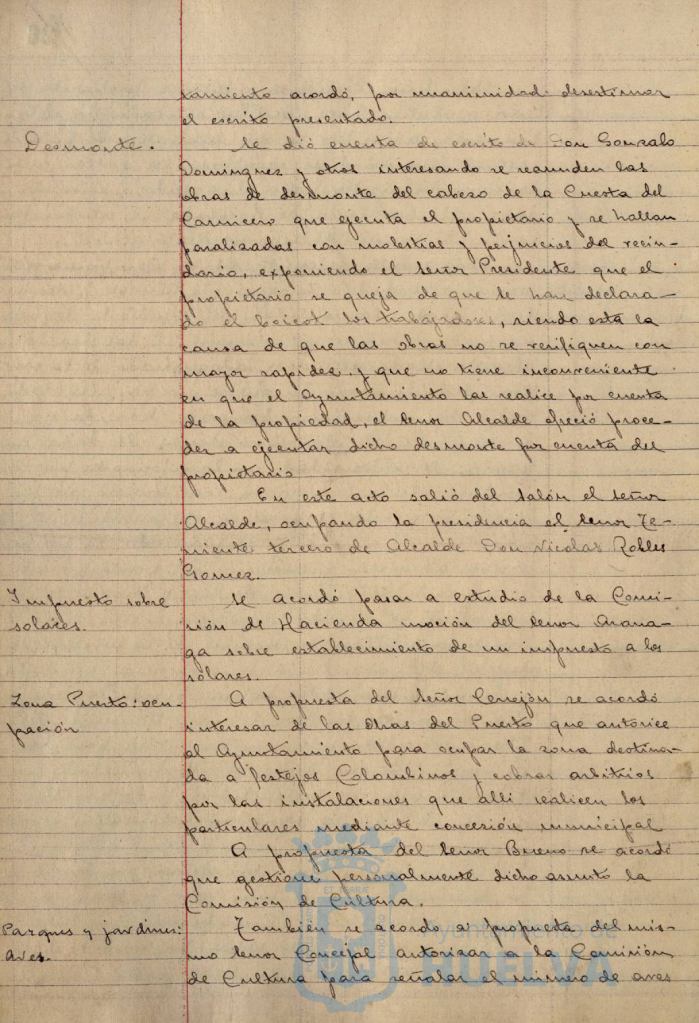 tamiento acordó, por unanimidad desestimar
el escrito presentado.
Desmonte.
Se dió cuenta de escrito de Don Gonzalo
Dominguez y otros interesando se reanuden las
obras de desmonte del cabezo de la Cuesta del
Carnicero que ejecuta el propietario y se hallan
paralizadas con molestias y perjuicios del vecin-
dario, exponiendo el Señor Presidente que el
propietario se queja de que le han declara-
do el boicot los trabajadores, siendo esta la
causa de que las obras no se verifiquen con
mayor rapidez, y que no tiene inconveniente
en que el Ayuntamiento las realice por cuenta
de la propiedad, el Señor Alcalde ofreció proce-
der a ejecutar dicho desmonte por cuenta del
propietario
En este acto salió del Salón el Señor
Alcalde, ocupando la presidencia el Señor Te-
niente tercero de Alcalde Don Nicolas Robles
Gomez.
Impuesto sobre
solares.
Se acordó pasar a estudio de la Comi-
sión de Hacienda moción del Señor Arana-
ga sobre establecimiento de un impuesto a los
solares.
Zona Puerto: ocu-
pación
A propuesta del Señor Cerrejón se acordó
interesar de las Obras del Puerto que autorice
al Ayuntamiento para ocupar la zona destina-
da a festejos Colombinos y cobrar arbitrios
por las instalaciones que alli realicen los
particulares mediante concesión municipal
A propuesta del Señor Bueno se acordó
que gestione personalmente dicho asunto la
Comisión de Cultura.
Parques y jardines:
aves.
También se acordo a propuesta del mis-
mo Señor Concejal autorizar a la Comisión
de Cultura para señalar el número de aves
HUELVA